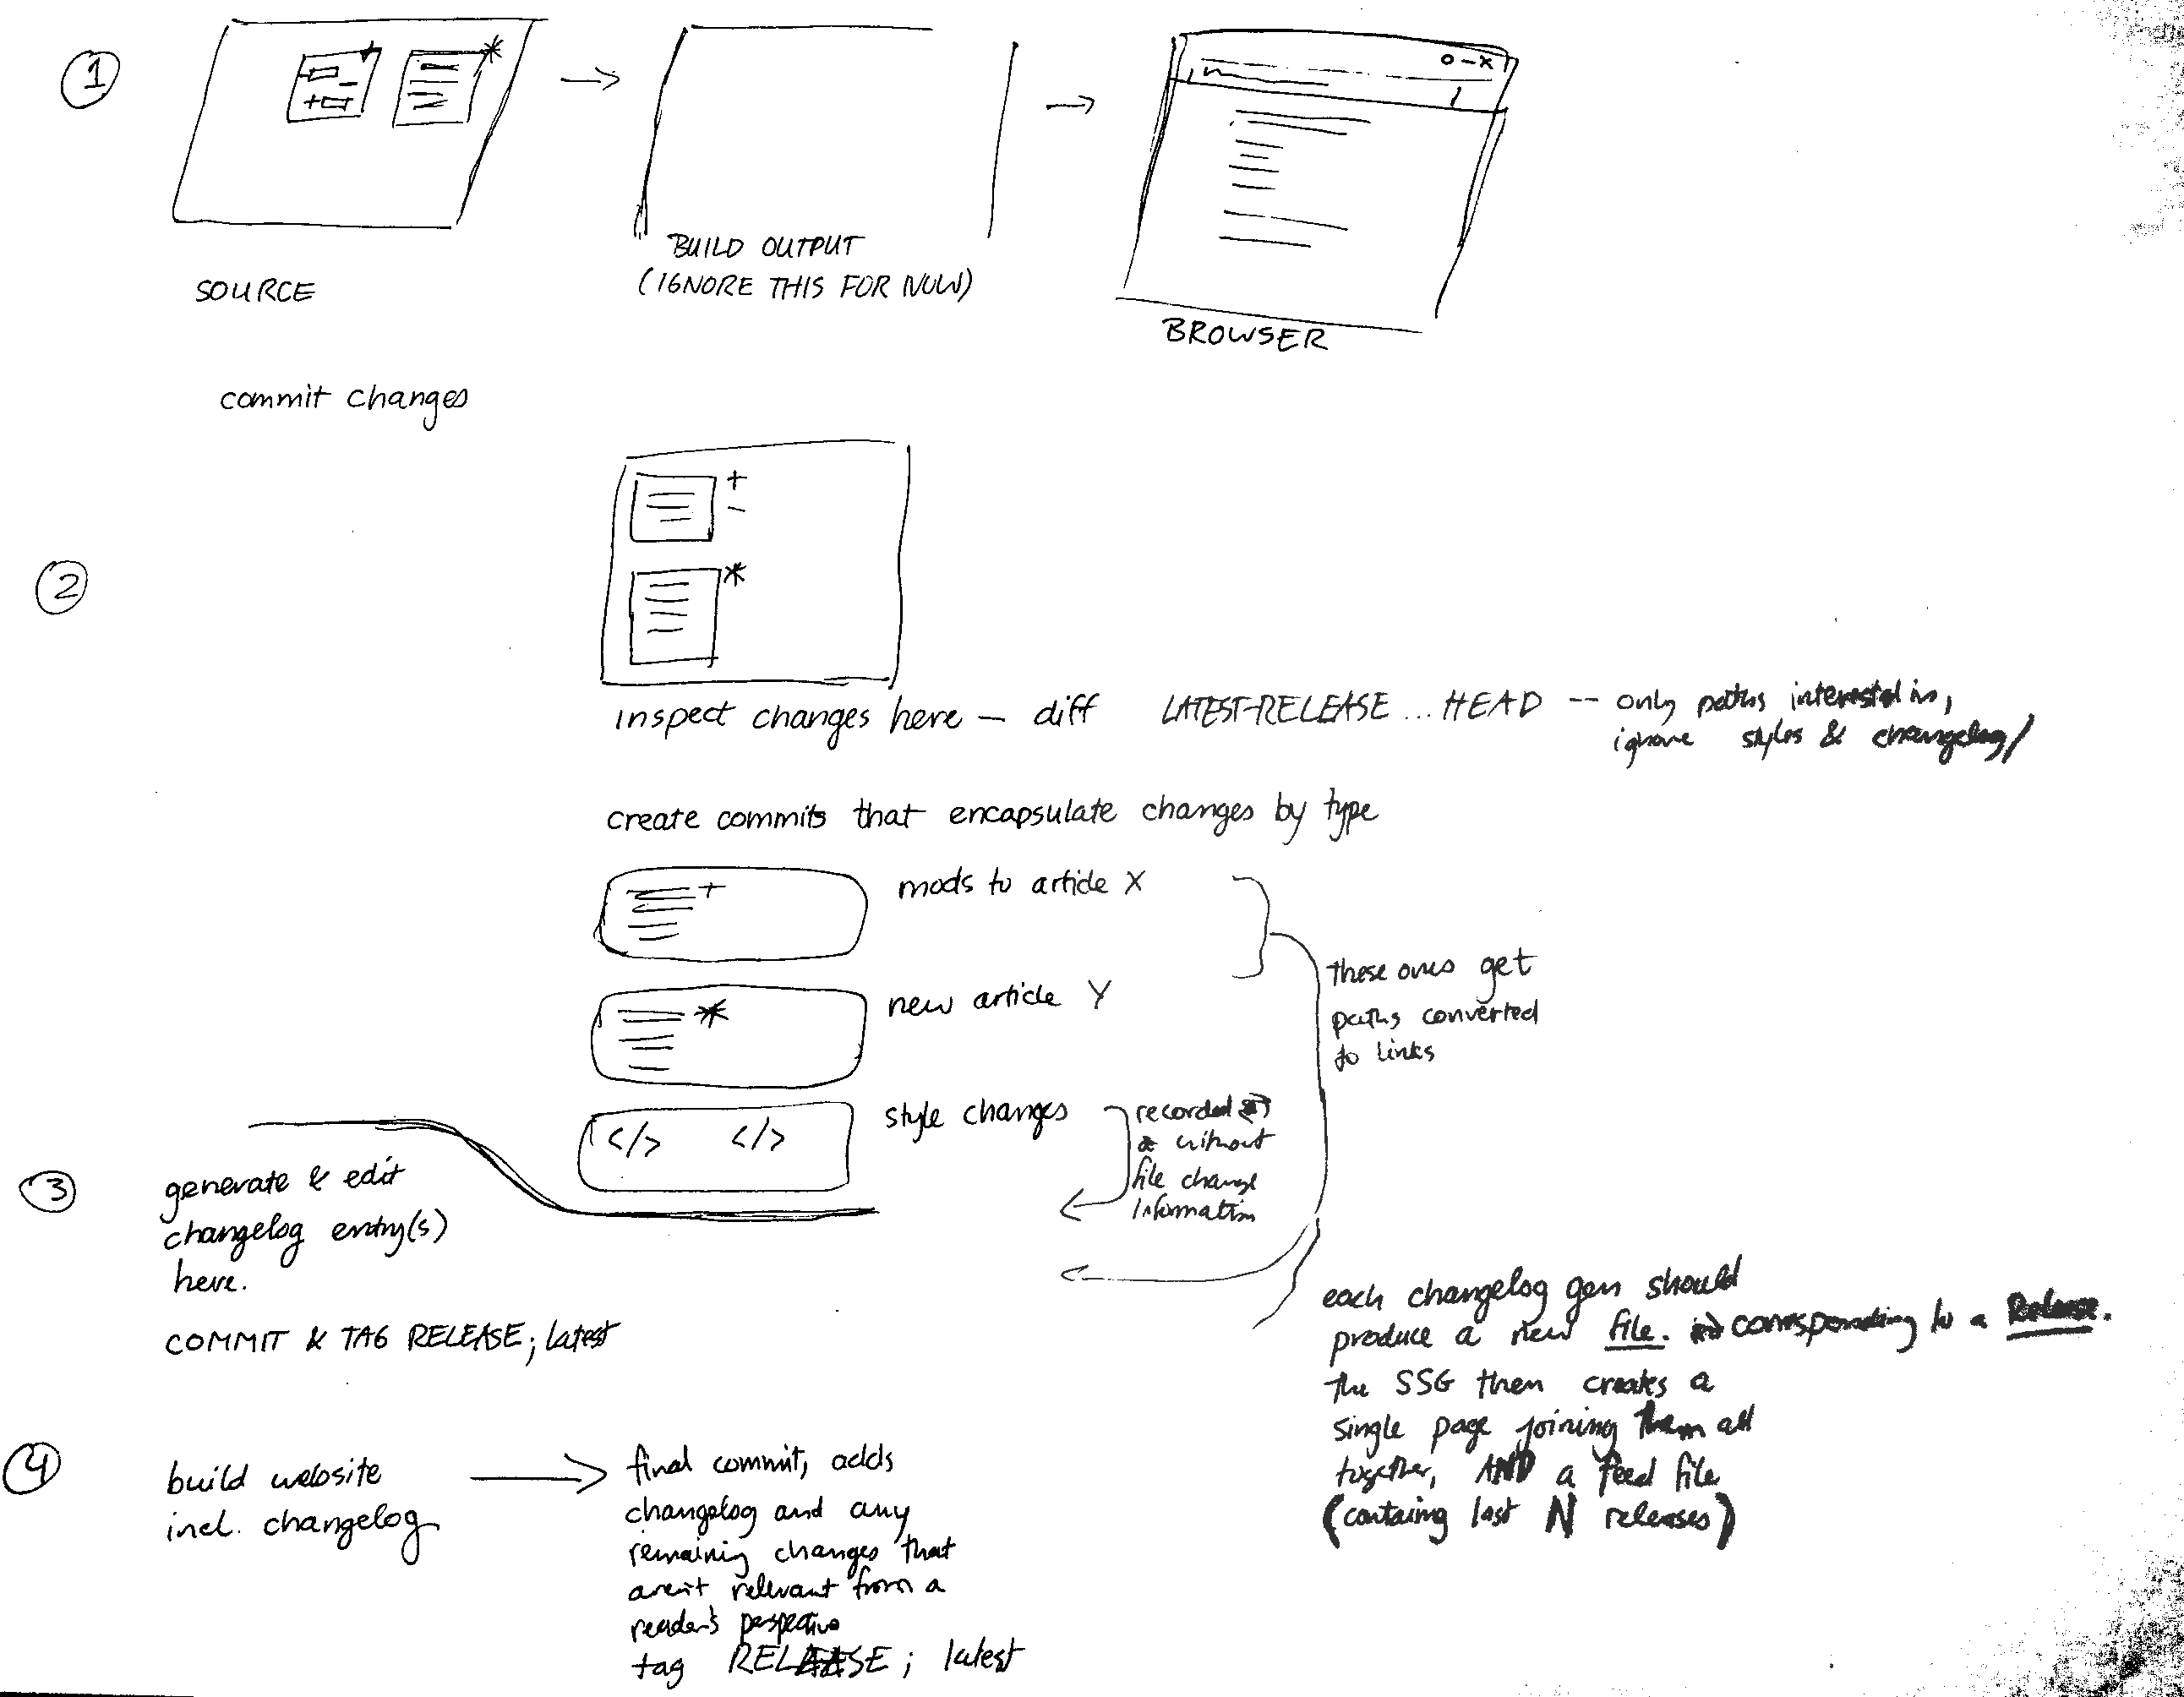 1
SOURCE
BUILD OUTPUT
(IGNORE THIS FOR NOW)
BROWSER
commit changes
2
inspect changes here — diff LATEST-RELEASE...HEAD -- only paths interested in,
ignore styles & changelog/
create commits that encapsulate changes by type
mods to article X
new article Y
these ones get
paths converted
to links
</> </>
style changes
recorded
without
file change
information
3
generate & edit
changelog entry(s)
here.
COMMIT & TAG RELEASE; latest
each changelog gen should
produce a new file. corresponding to a Release.
the SSG then creates a
single page joining them all
together, AND a feed file
(containg last N releases)
4
build website
incl. changelog
final commit, adds
changelog and any
remaining changes that
aren't relevant from a
reader's perspective
tag RELEASE; latest